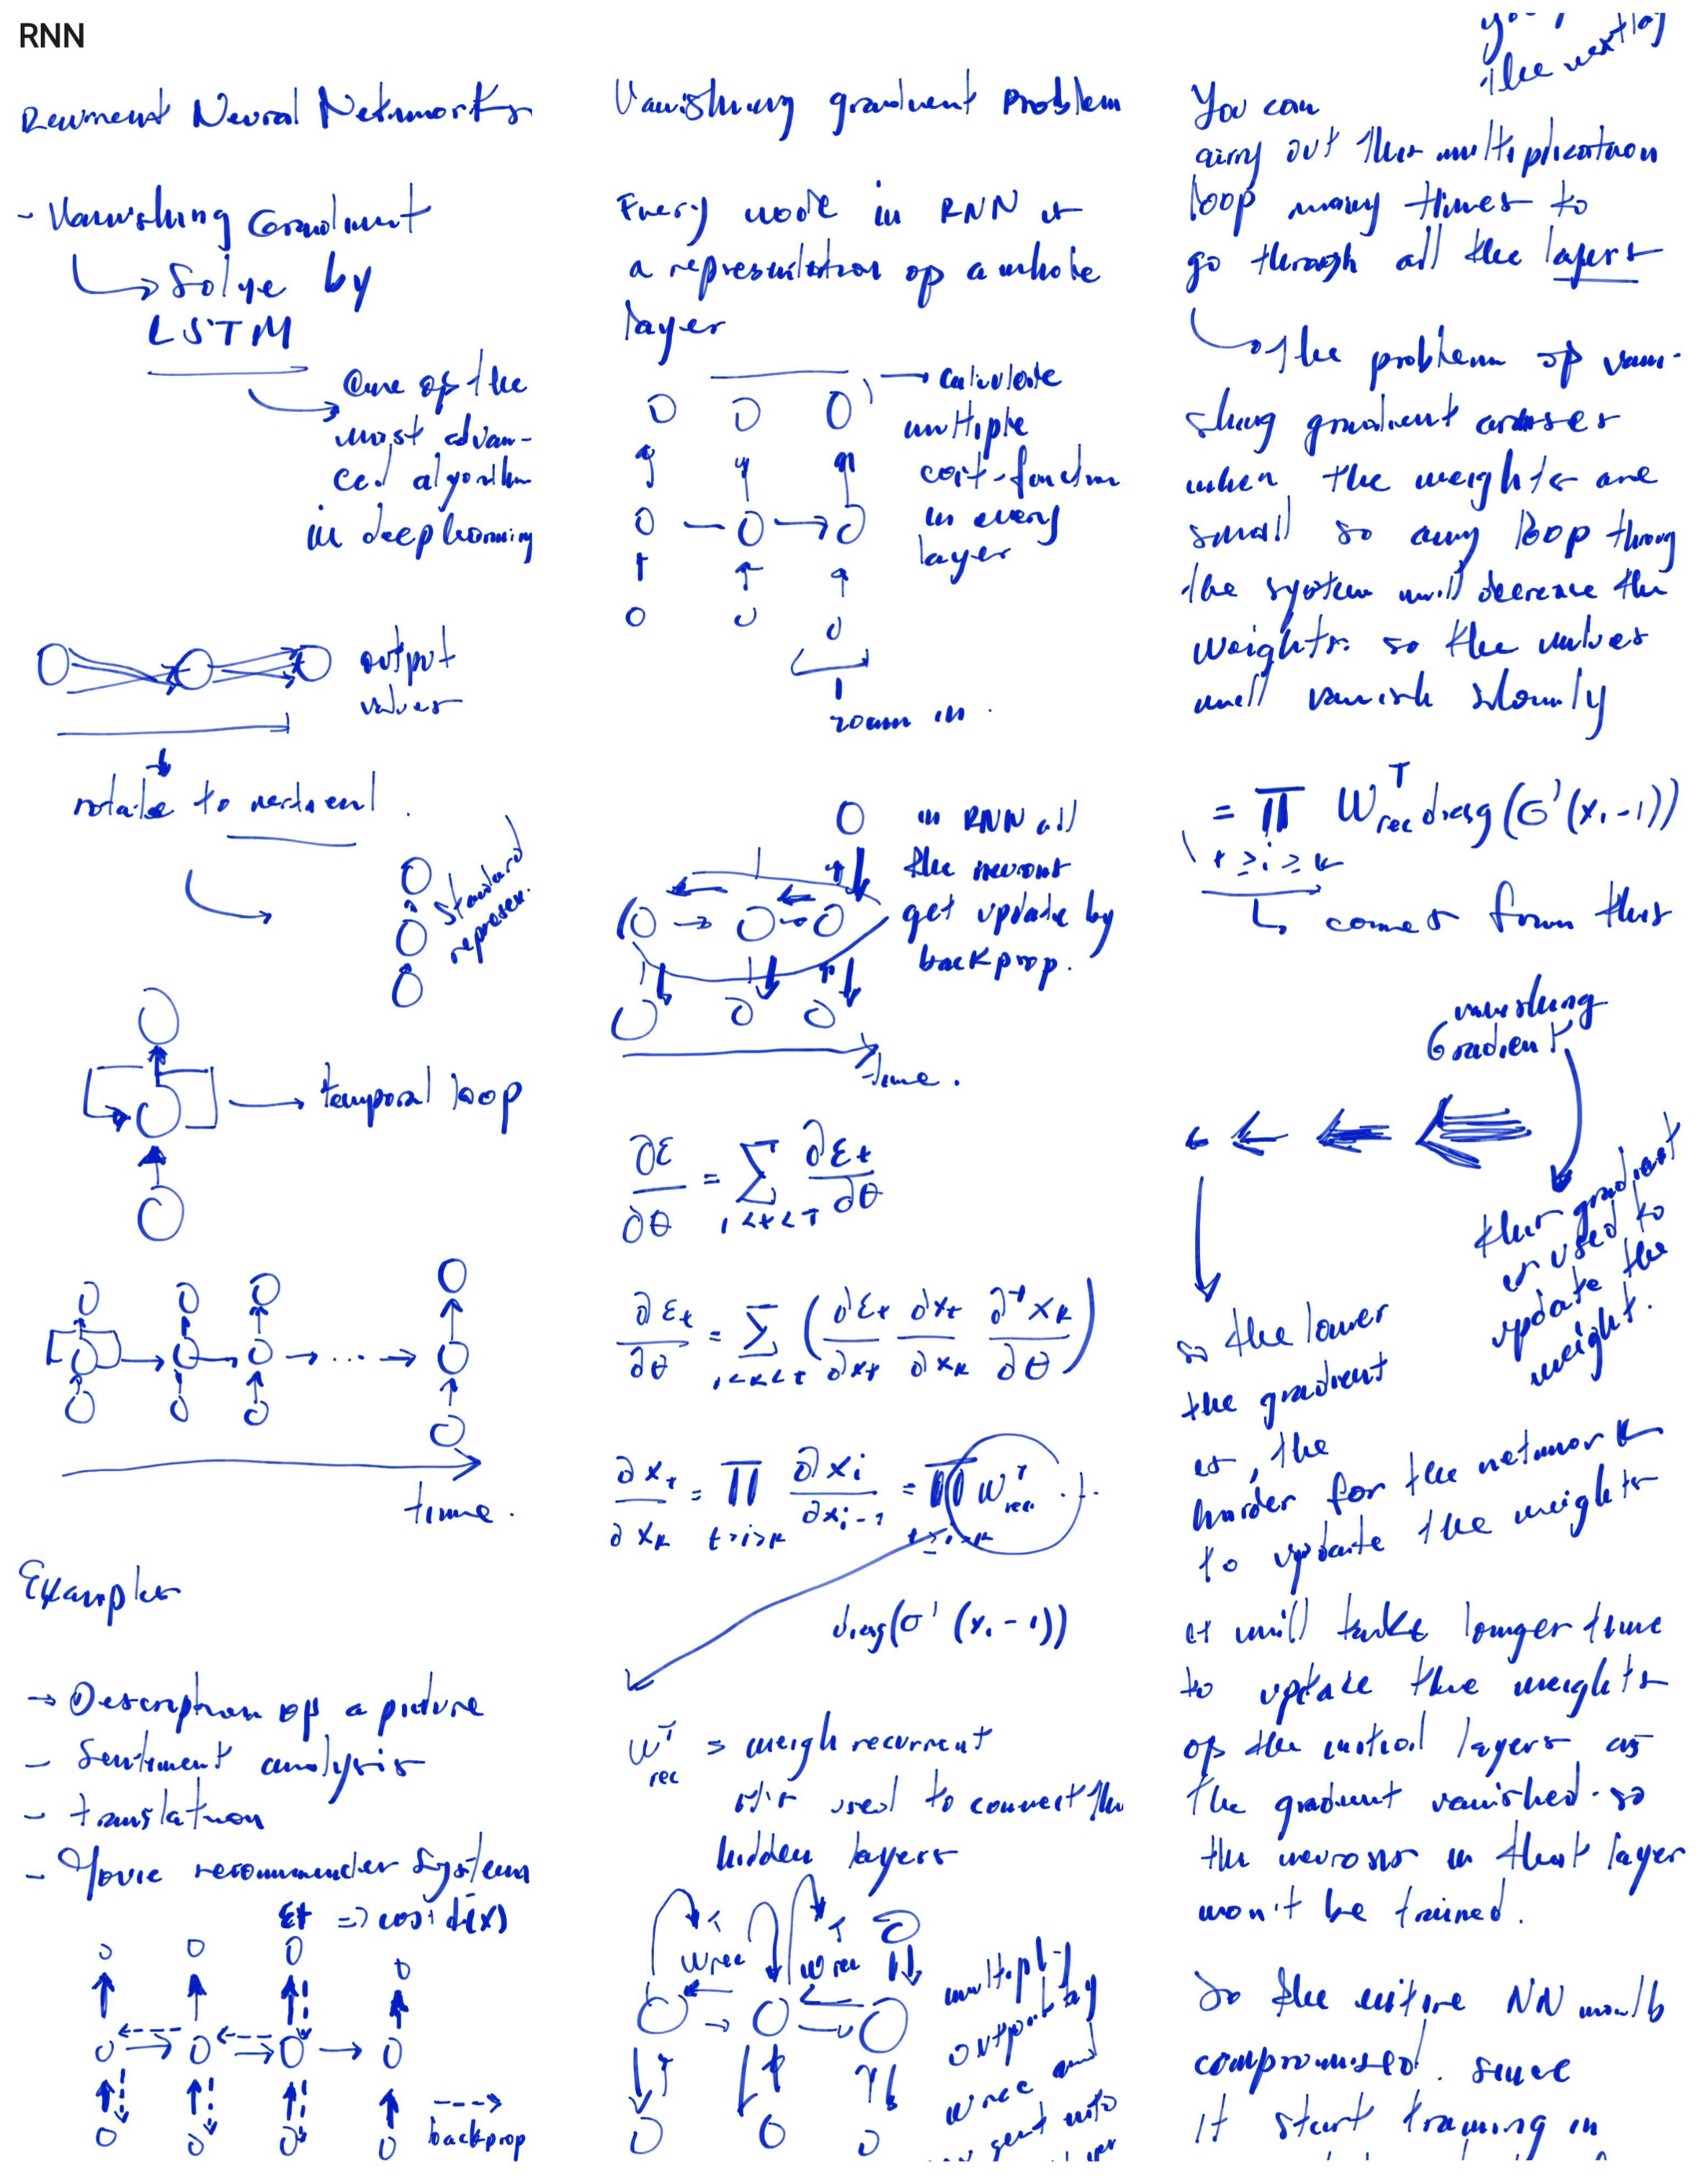 RNN
Recurrent Neural Networks
- Vanishing Gradient
Solve by
LSTM
One of the
most advan-
ced algorithm
in deep learning
output
values
rotate to vertical.
Standard
represen.
temporal loop
...
time.
Examples
→ Description of a picture
- Sentiment analysis
- translation
- Movie recommender System
εt => cost f(x)
---> backprop
Vanishing gradient Problem
Every node in RNN is
a representation of a whole
layer
→ calculate
multiple
cost-function
in every
layer
zoom in.
in RNN all
the neurons
get update by
backprop.
time.
∂ε/∂θ = Σ 1<t<T ∂εt/∂θ
∂εt/∂θ = Σ 1<k<t (∂εt/∂xt ∂xt/∂xk ∂⁺xk/∂θ)
∂xt/∂xk = Π t>i>k ∂xi/∂xi-1 = Π t≥i>k W^T rec ...
diag(σ'(xi-1))
W^T rec = weigh recurrent
used to connect the
hidden layers
Wrec Wrec
multiply
output by
Wrec and
sent into
the next lay
You can
carry out this multiplication
loop many times to
go through all the layers
the problem of vani-
shing gradient arises
when the weights are
small so any loop throug
the system will decrease the
weights. so the values
will vanish slowly
= Π t≥i≥k W^T rec diag(σ'(xi-1))
comes from this
vanishing
Gradient
this gradient
is used to
update the
weight.
so the lower
the gradient
is, the
harder for the network
to update the weights
it will take longer time
to update the weights
of the initial layers as
the gradient vanished. so
the neurons in that layer
won't be trained.
So the entire NN would
compromised. since
it start training in